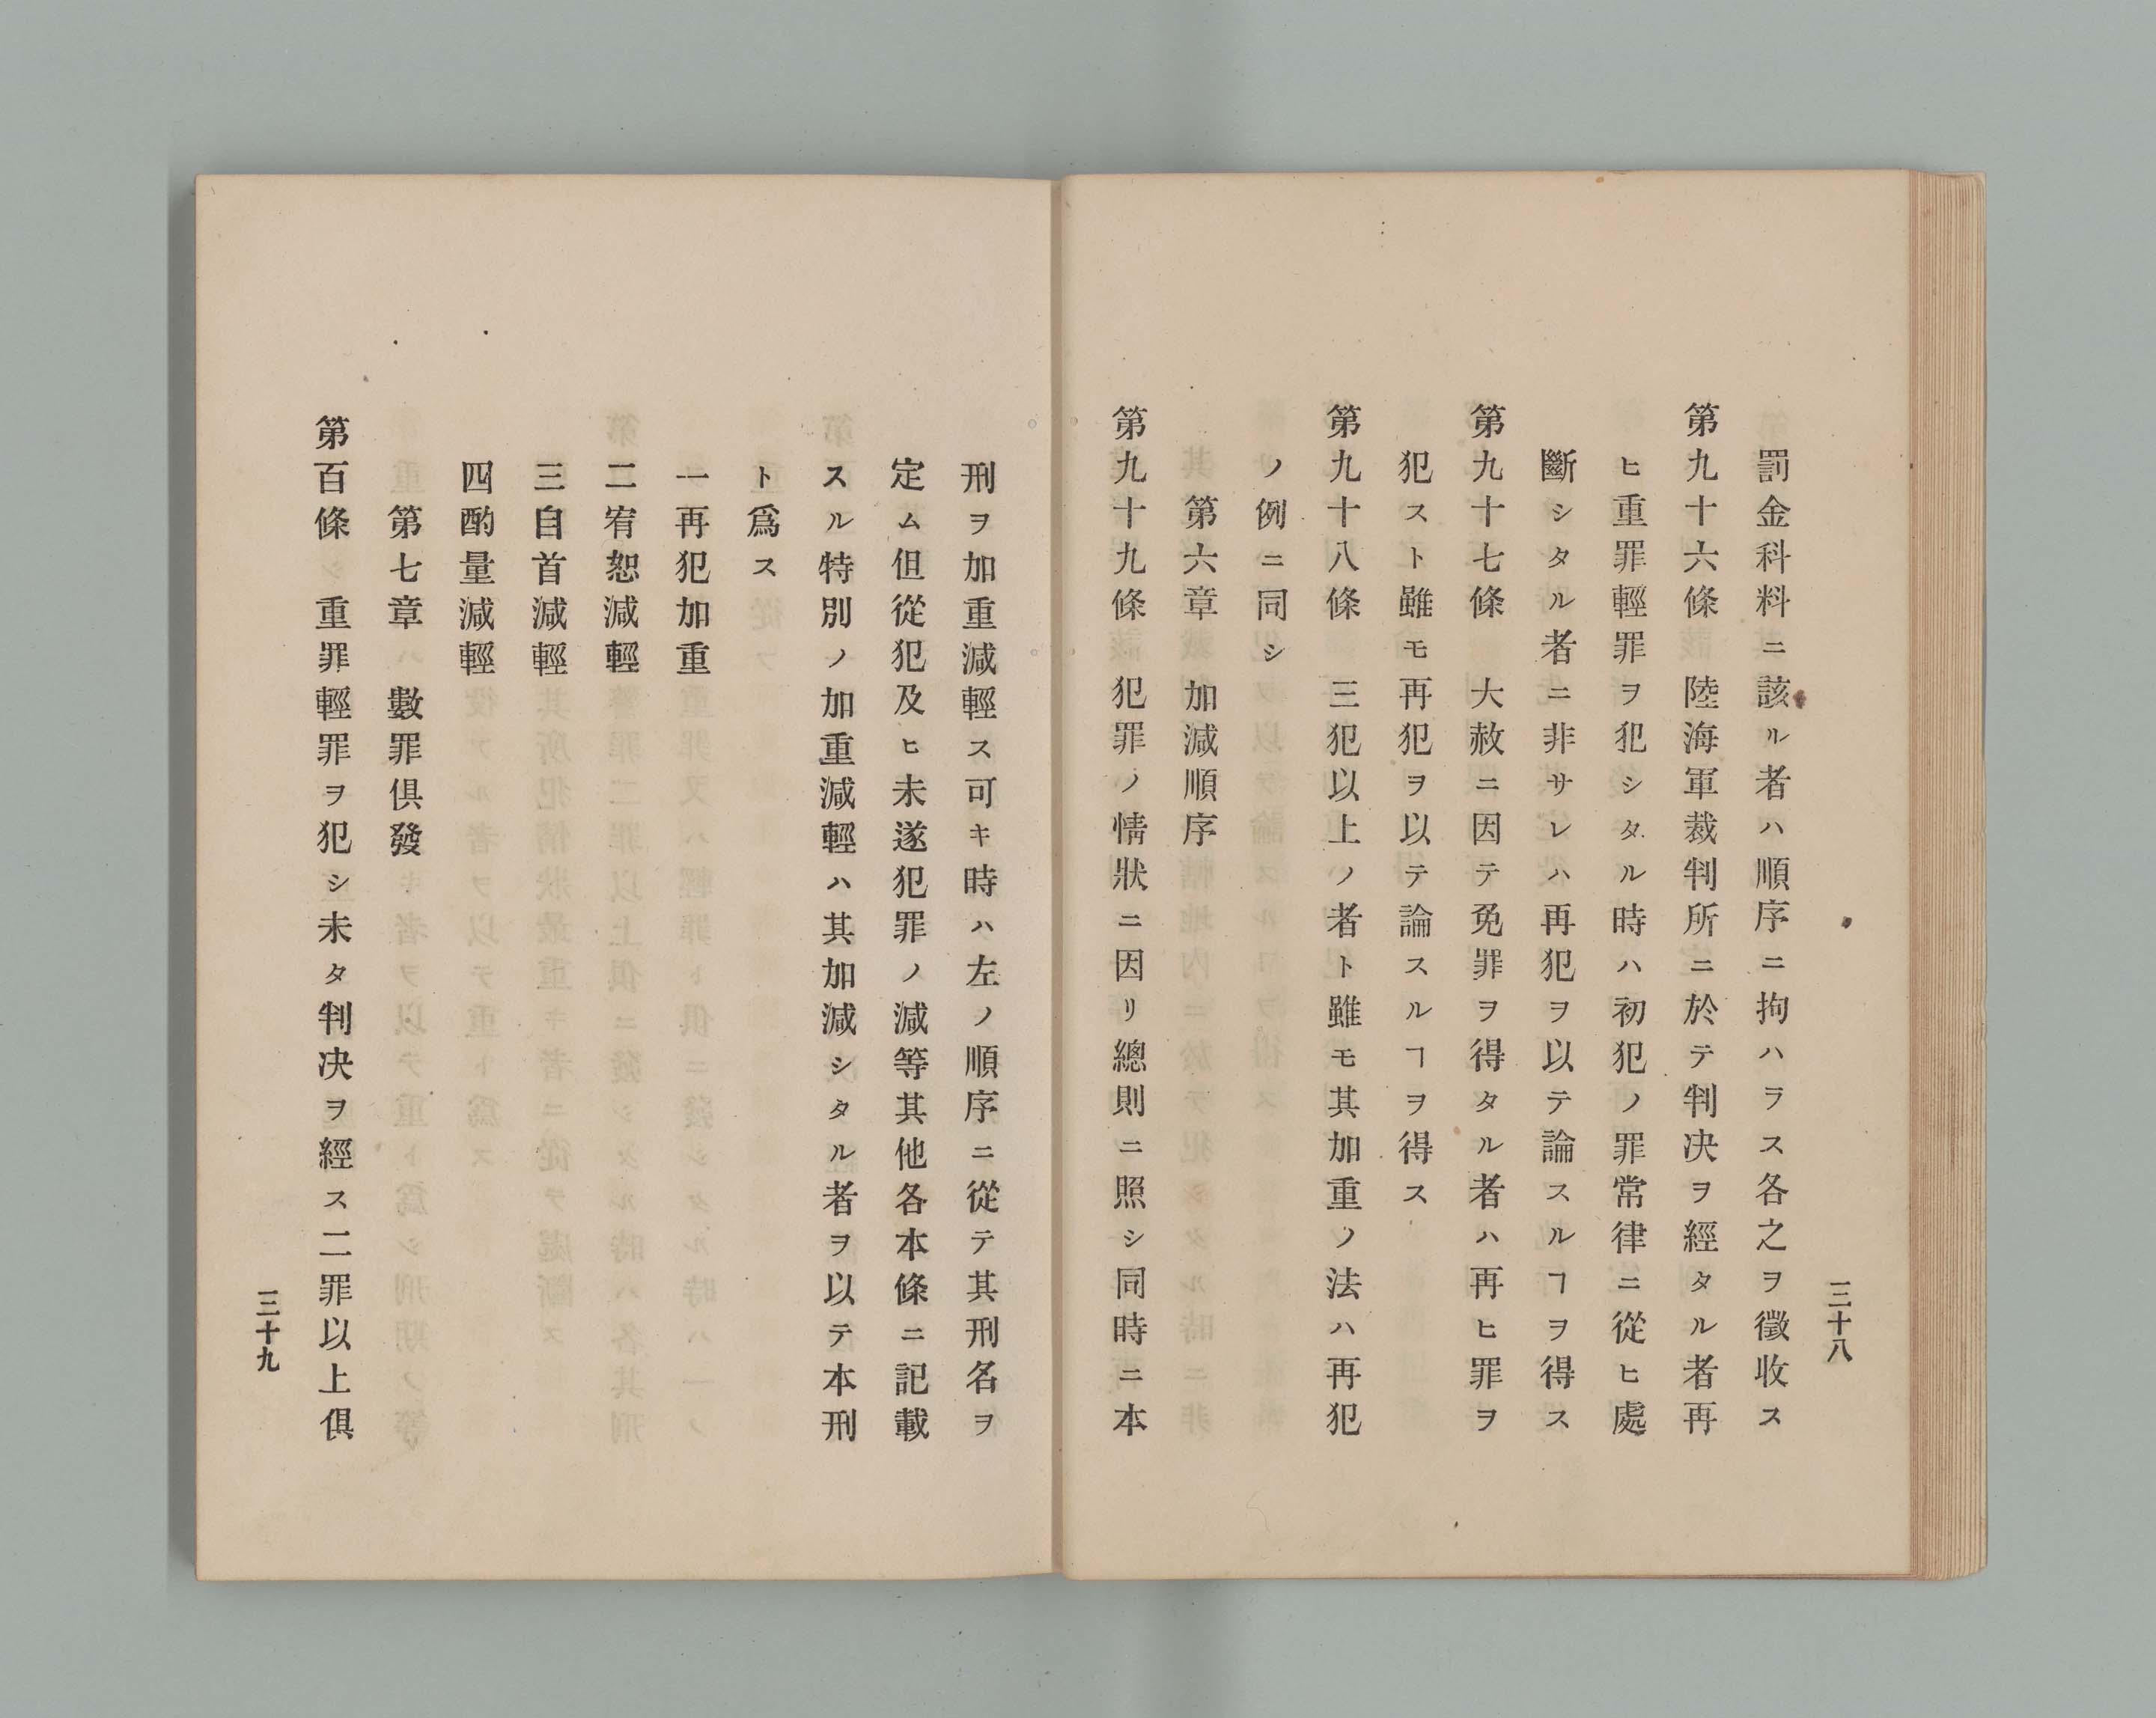 罰金科料ニ該ル者ハ順序ニ拘ハラス各之ヲ徵收ス
第九十六條　陸海軍裁判所ニ於テ判決ヲ經タル者再
ヒ重罪輕罪ヲ犯シタル時ハ初犯ノ罪常律ニ從ヒ處
斷シタル者ニ非サレハ再犯ヲ以テ論スルヿヲ得ス
第九十七條　大赦ニ因テ免罪ヲ得タル者ハ再ヒ罪ヲ
犯スト雖モ再犯ヲ以テ論スルヿヲ得ス
第九十八條　三犯以上ノ者ト雖モ其加重ノ法ハ再犯
ノ例ニ同シ
第六章　加減順序
第九十九條　犯罪ノ情狀ニ因リ總則ニ照シ同時ニ本
三十八
刑ヲ加重減輕ス可キ時ハ左ノ順序ニ從テ其刑名ヲ
定ム但從犯及ヒ未遂犯罪ノ減等其他各本條ニ記載
スル特別ノ加重減輕ハ其加減シタル者ヲ以テ本刑
ト爲ス
一再犯加重
二宥恕減輕
三自首減輕
四酌量減輕
第七章　數罪俱發
第百條　重罪輕罪ヲ犯シ未タ判決ヲ經ス二罪以上俱
三十九